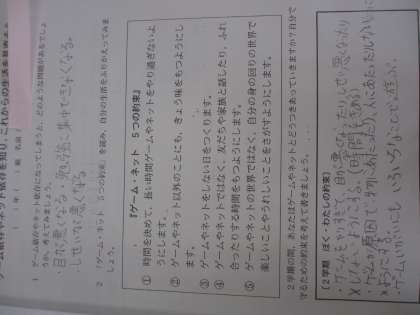 ゲーム依存やネット依存を知り、これからの生活を
（　）年（　）組　名前（
1　ゲーム依存やネット依存になってしまうと、どのような問題があるでしょ
うか。考えてみましょう。
目が悪くなる　勉強に集中できなくなる。
しせいが悪くなる
2　「ゲーム・ネット　5つの約束」を読み、自分の生活をふりかえってみま
しょう。
『ゲーム・ネット　5つの約束』
① 時間を決めて、長い時間ゲームやネットをやり過ぎないよ
うにします。
② ゲームやネット以外のことにも、きょう味をもつようにし
ます。
③ ゲームやネットをしない日をつくります。
④ ゲームやネットではなく、友だちや家族と話したり、ふれ
合ったりする時間をもつようにします。
⑤ ゲームやネットの世界ではなく、自分の身の回りの世界で
楽しいことやうれしいことをさがすようにします。
2学期の間、あなたはゲームやネットとどうつきあっていきますか？自分で
守るための約束を考えて書きましょう。
【2学期　ぼく・わたしの約束】
・ゲームをやりすぎて、目が悪くなったりしせいが悪くなったり
しないようにする。（時間を決める）
・ゲームが原因で、物にあたったり、人にあたったりしない
ようにする。
・ゲームいがいにも、いろいろなことをして遊ぶ。